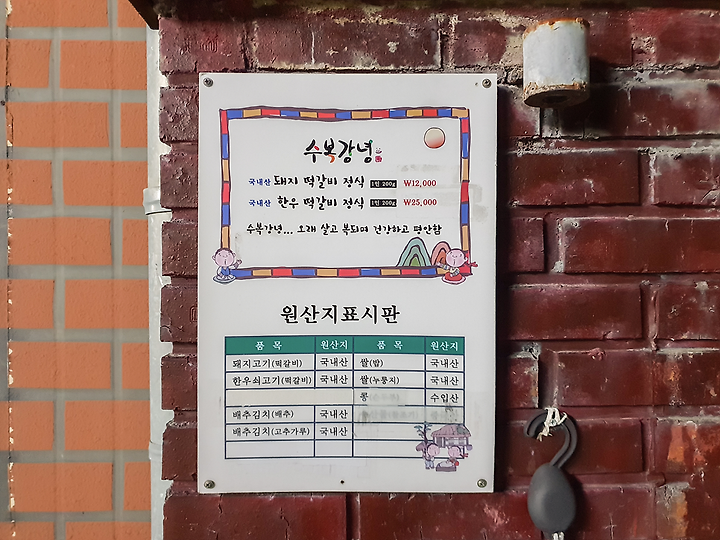 수복강녕
국내산 돼지 떡갈비 정식 1인 200g ₩12,000
국내산 한우 떡갈비 정식 1인 200g ₩25,000
수복강녕... 오래 살고 복되며 건강하고 평안함
원산지표시판
품 목 원산지 품 목 원산지
돼지고기(떡갈비) 국내산 쌀(밥) 국내산
한우쇠고기(떡갈비) 국내산 쌀(누룽지) 국내산
콩 수입산
배추김치(배추) 국내산
배추김치(고추가루) 국내산